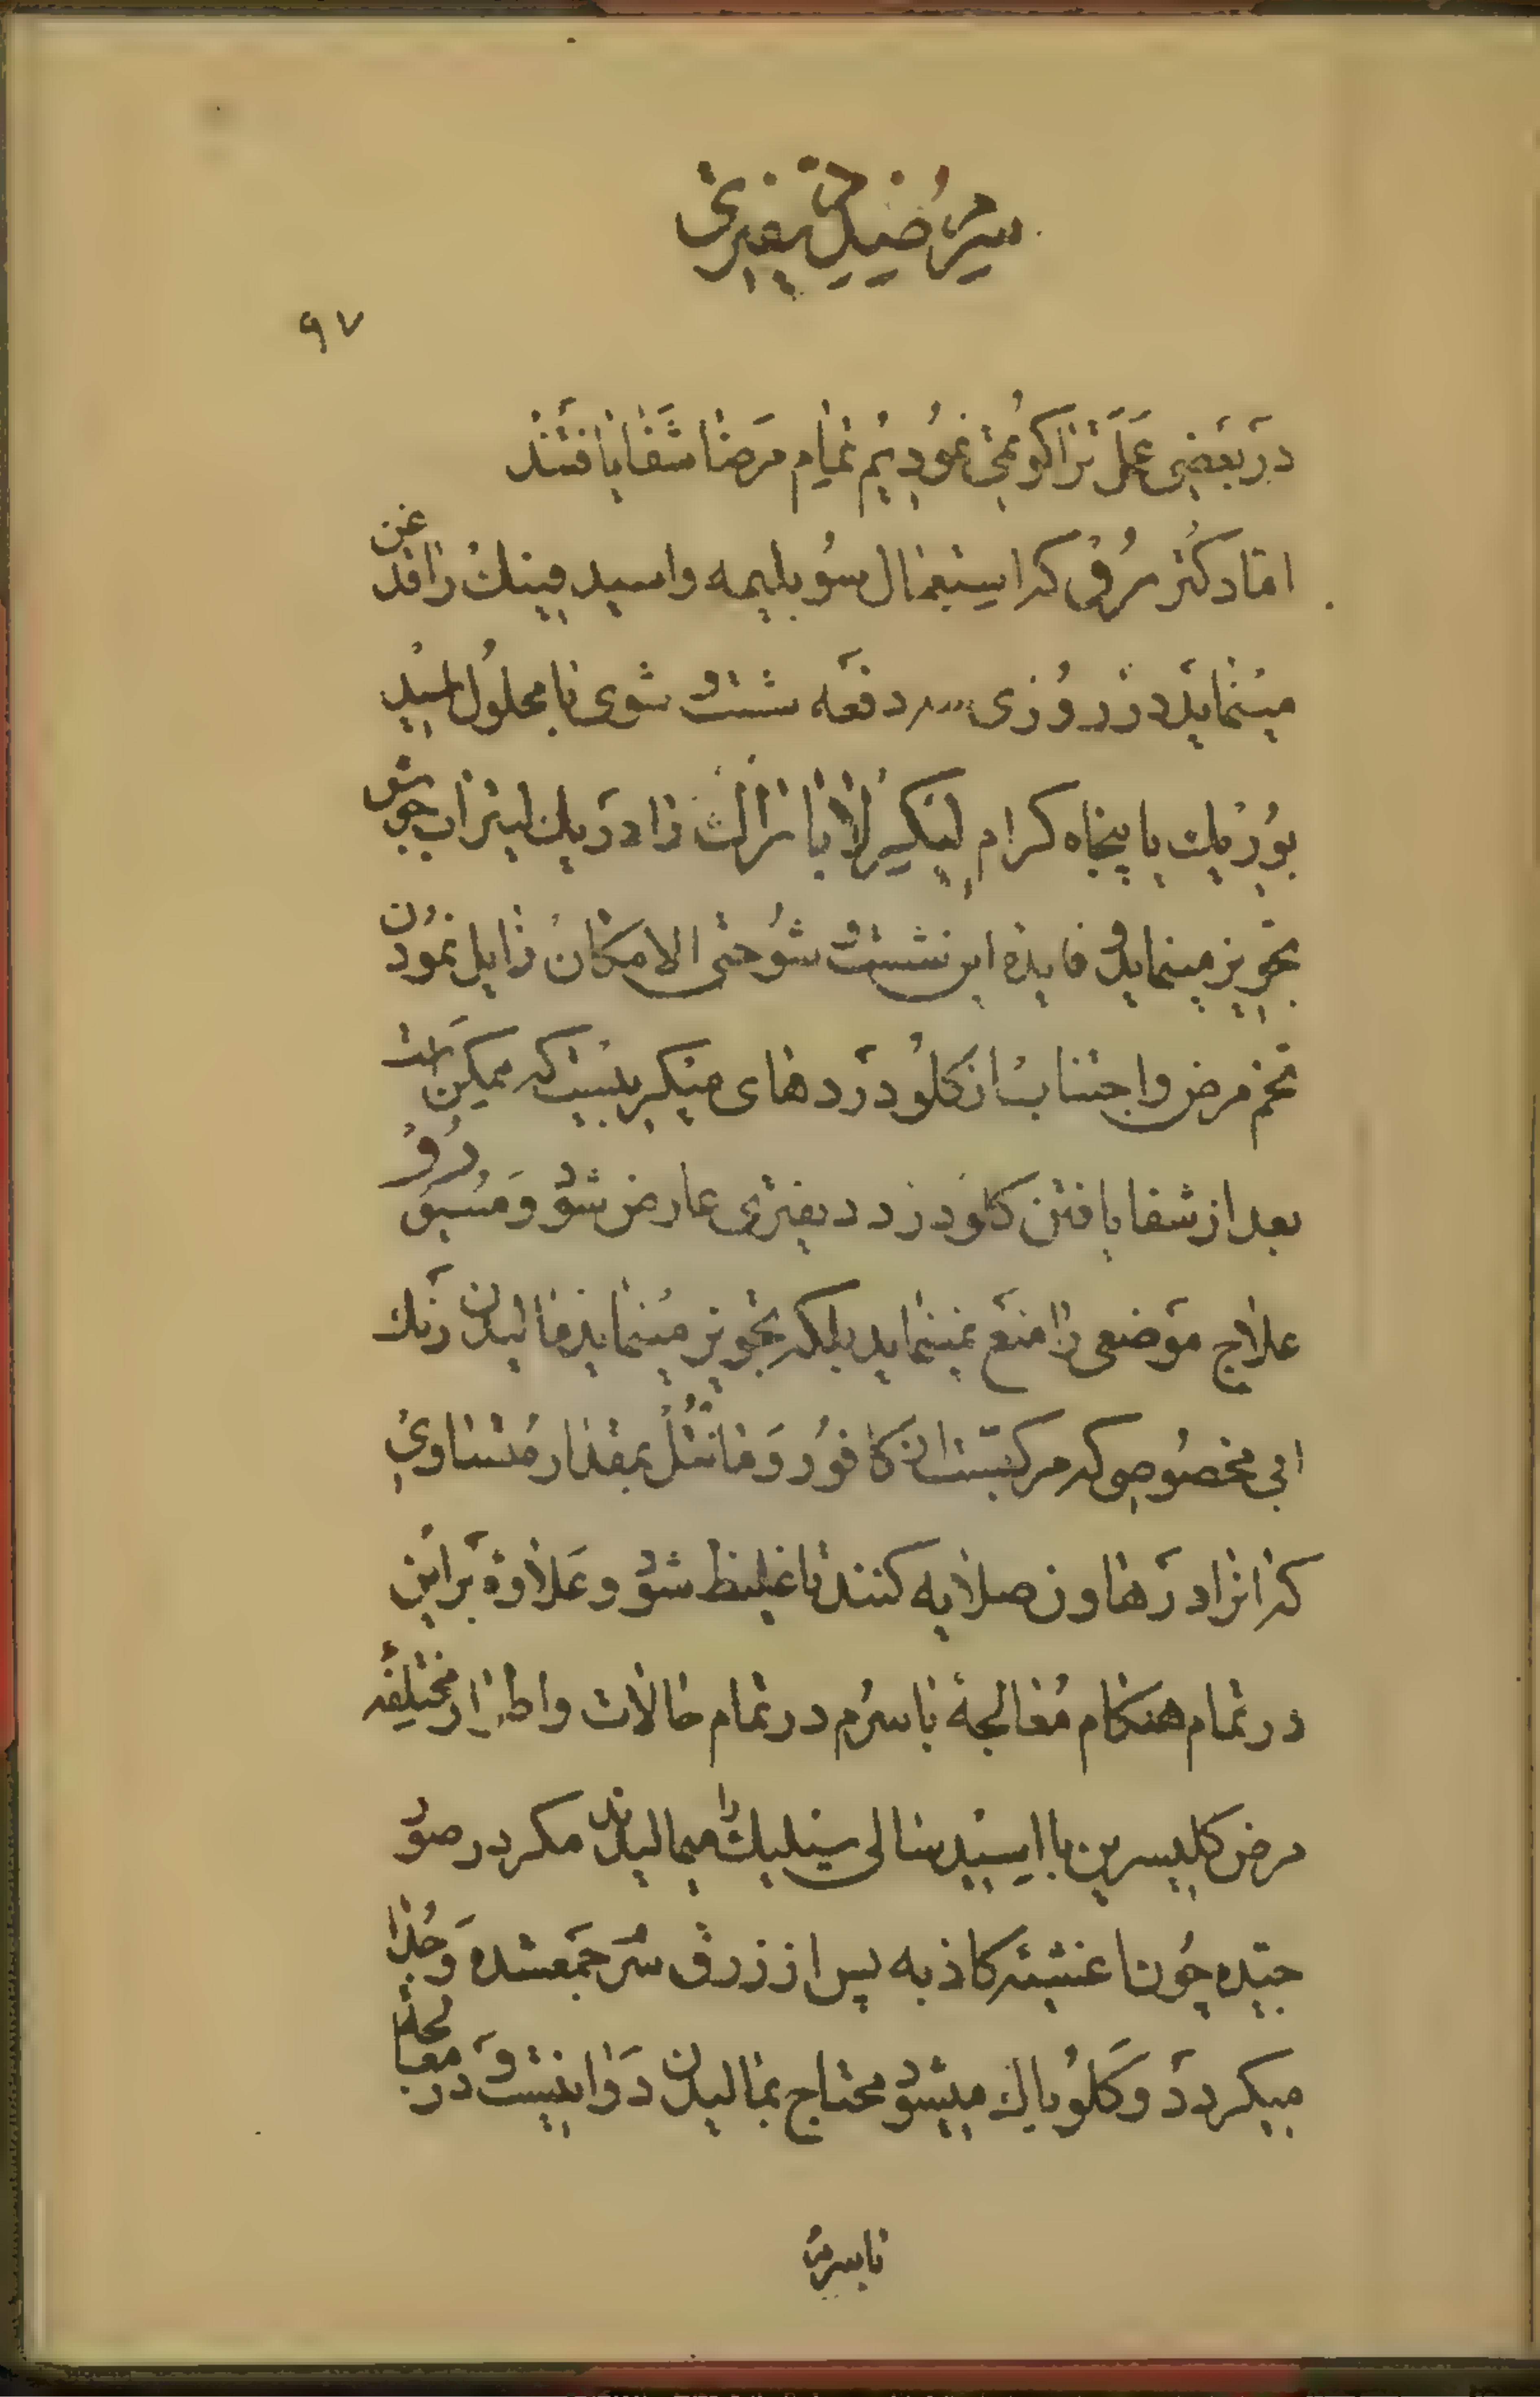 سرم ضد دیفتری
۹۷
در بعضی عمل تراکوتمی نمودیم تمام مرضا شفا یافتند
اما دکتر رو که استعمال سوبلیمه و اسید فینیک را قدغن
مینماید در روزی سه دفعه شست و شوی با محلول اسید
بوریک یا پنجاه کرام لیکر لاباراک را در یک لیتر آب جوش
تجویز مینماید و فایده این شست و شو حتی الامکان زایل نمودن
تخم مرض و اجتناب از کلو درد های میکربیست که ممکن است
بعد از شفا یافتن کلو درد دیفتری عارض شود و مسیو رو
علاج موضعی را منع نمینماید بلکه تجویز مینماید مالیدن رنک
ابی مخصوصی که مرکبست از کافور و مانتل بمقدار متساوی
که انرا در هاون صلایه کنند تا غلیظ شود و علاوه بر این
در تمام هنکام معالجهٔ با سرم در تمام حالات و اطراز مختلفه
مرض کلیسرین با اسید سالی سیلیک را میمالیدند مکر در صور
جیده چون اغشیه کاذبه پس از زرق سرم جمعشده و جدا
میکردد و کلو پاک میشود محتاج بمالیدن دوا نیست و در معالجهٔ
با سرم